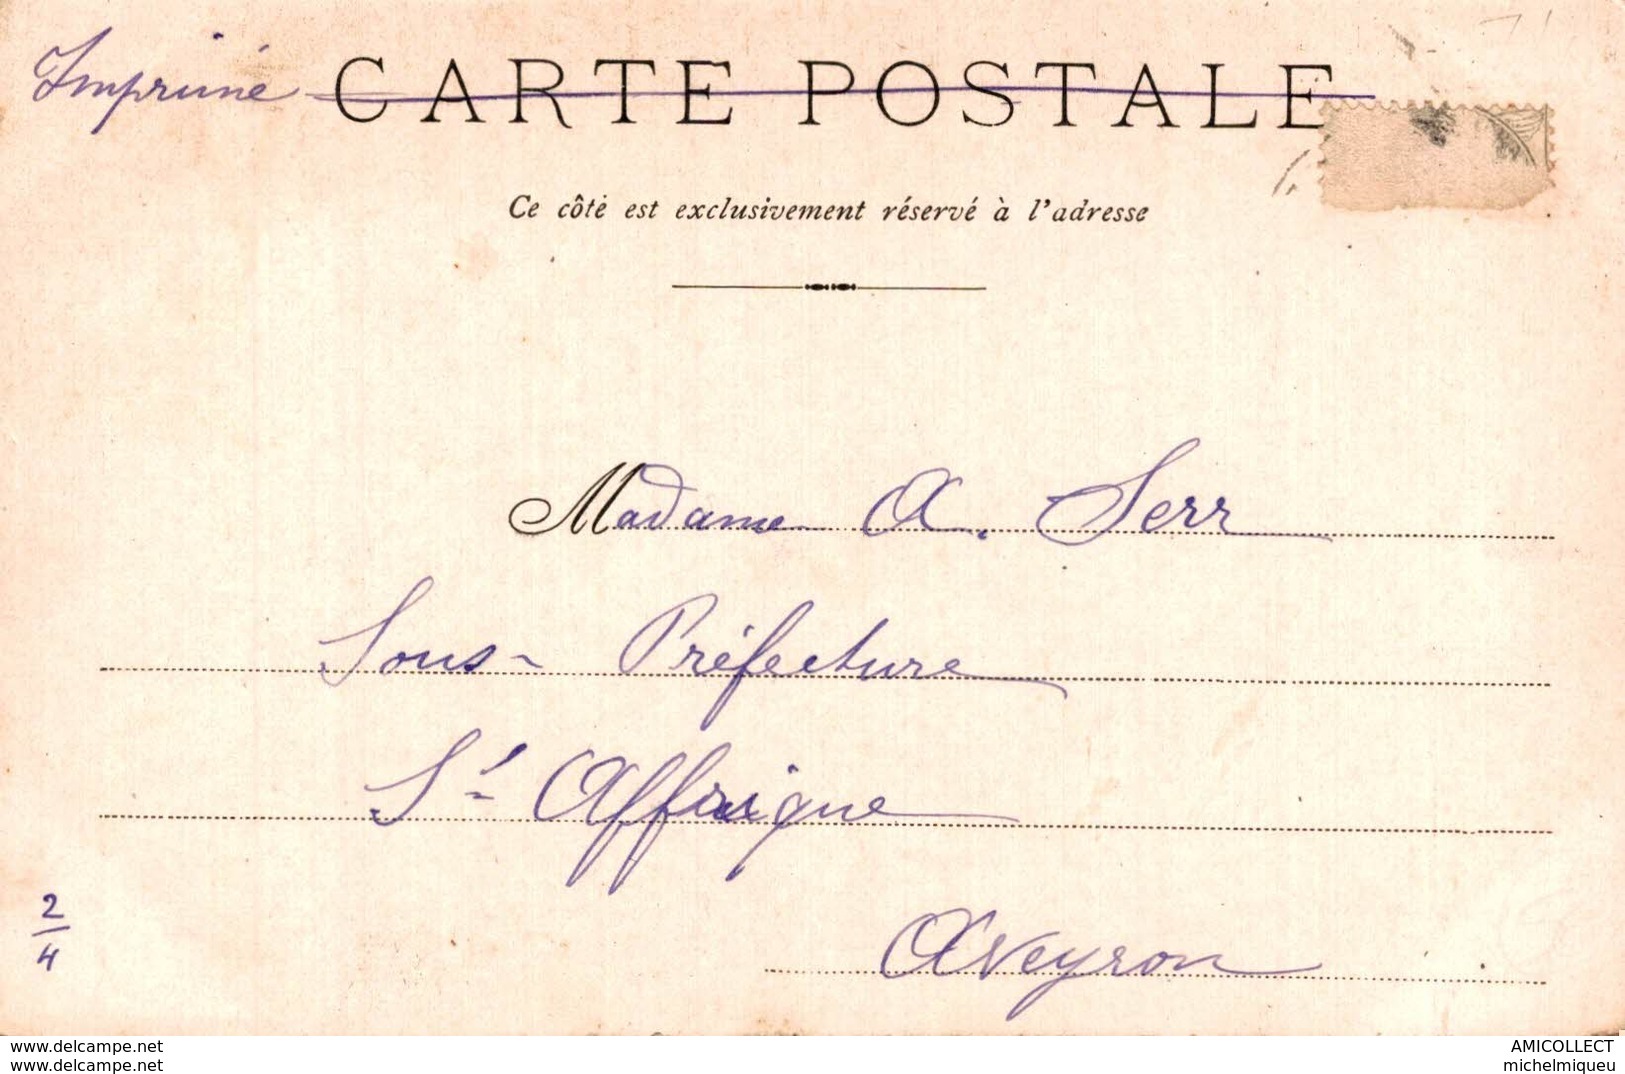 Imprimé CARTE POSTALE
Ce côté est exclusivement réservé à l'adresse
Madame A. Serr
Sous-Préfecture
St Affrique
Aveyron
2
4
www.delcampe.net
www.delcampe.net
AMICOLLECT
michelmiqueu